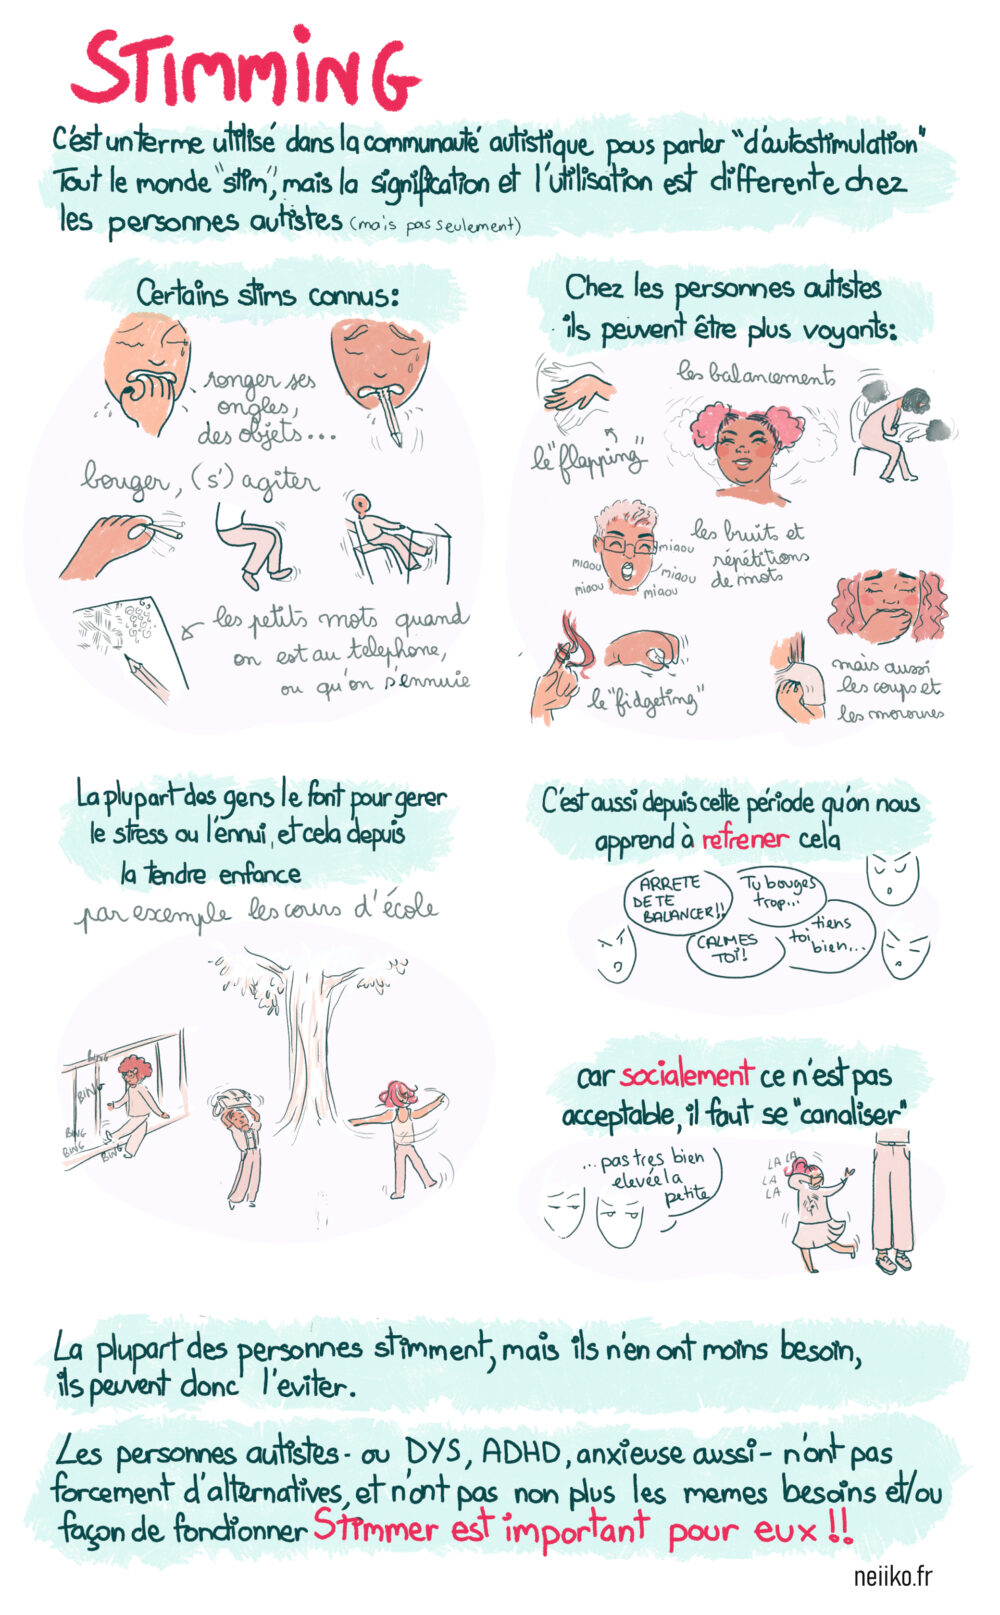 STIMMING
C'est un terme utilisé dans la communauté autistique pous parler "d'autostimulation"
Tout le monde "stim", mais la signification et l'utilisation est differente chez
les personnes autistes (mais pas seulement)
Certains stims connus:
ronger ses
ongles,
des objets...
bouger, (s') agiter
les petits mots quand
on est au telephone,
ou qu'on s'ennuie
Chez les personnes autistes
ils peuvent être plus voyants:
les balancements
le "flapping"
les bruits et
répétitions
de mots
miaou
miaou
miaou
miaou
miaou
le "fidgeting"
mais aussi
les coups et
les morsures
La plupart des gens le font pour gerer
le stress ou l'ennui, et cela depuis
la tendre enfance
par exemple les cours d'école
BING
BING
BING
BING
BING
C'est aussi depuis cette période qu'on nous
apprend à refrener cela
ARRETE
DE TE
BALANCER!!
Tu bouges
trop...
CALMES
TOI!
tiens
toi
bien...
car socialement ce n'est pas
acceptable, il faut se "canaliser"
... pas tres bien
elevée la
petite
LA LA
LA
LA
La plupart des personnes stimment, mais ils n'en ont moins besoin,
ils peuvent donc l'eviter.
Les personnes autistes - ou DYS, ADHD, anxieuse aussi - n'ont pas
forcement d'alternatives, et n'ont pas non plus les memes besoins et/ou
façon de fonctionner Stimmer est important pour eux !!
neiiko.fr